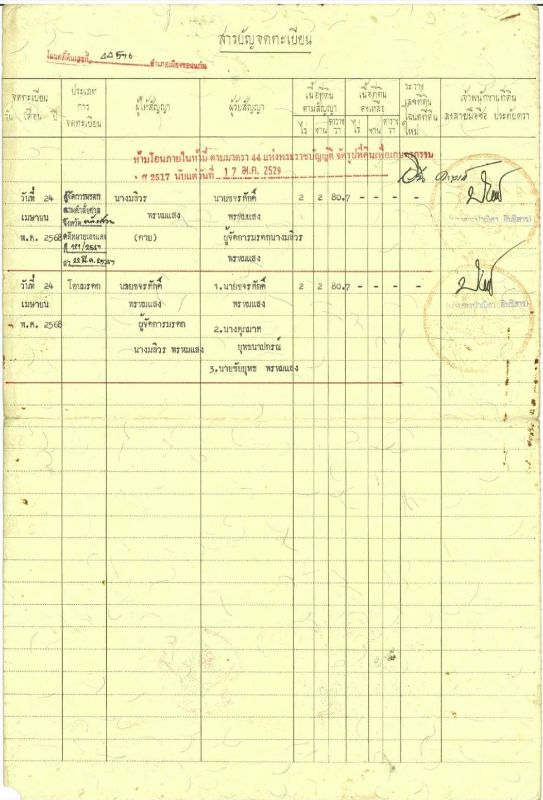 สารบัญจดทะเบียน
โฉนดที่ดินเลขที่ 44596 อำเภอเมืองขอนแก่น
จดทะเบียน
วัน เดือน ปี
ประเภท
การ
จดทะเบียน
ผู้ให้สัญญา
ผู้รับสัญญา
เนื้อที่ดิน
ตามสัญญา
ไร่ งาน ตาราง วา
เนื้อที่ดิน
คงเหลือ
ไร่ งาน ตาราง วา
ระวาง
เลขที่ดิน
โฉนดที่ดิน
ใหม่
เจ้าพนักงานที่ดิน
ลงลายมือชื่อ ประทับตรา
ห้ามโอนภายในห้าปี ตามมาตรา 44 แห่งพระราชบัญญัติ จัดรูปที่ดินเพื่อเกษตรกรรม
2517 นับแต่วันที่ 17 2529
วันที่ 24 ผู้จัดการมรดก นางมลิวร นายขจรศักดิ์ 2 2 80.7 - - - -
เมษายน ตามคำสั่งศาล พรหมแสง พรหมแสง
จังหวัด
พ.ศ. 2568 คดีหมายเลขแดง (ตาย) ผู้จัดการมรดกนางมลิวร
พรหมแสง
วันที่ 24 โอนมรดก นายขจรศักดิ์ 1.นายขจรศักดิ์ 2 2 80.7 - - - -
เมษายน พรหมแสง พรหมแสง
พ.ศ. 2568 ผู้จัดการมรดก 2.นาง
นางมลิวร พรหมแสง
3.นายชัยยุทธ พรหมแสง